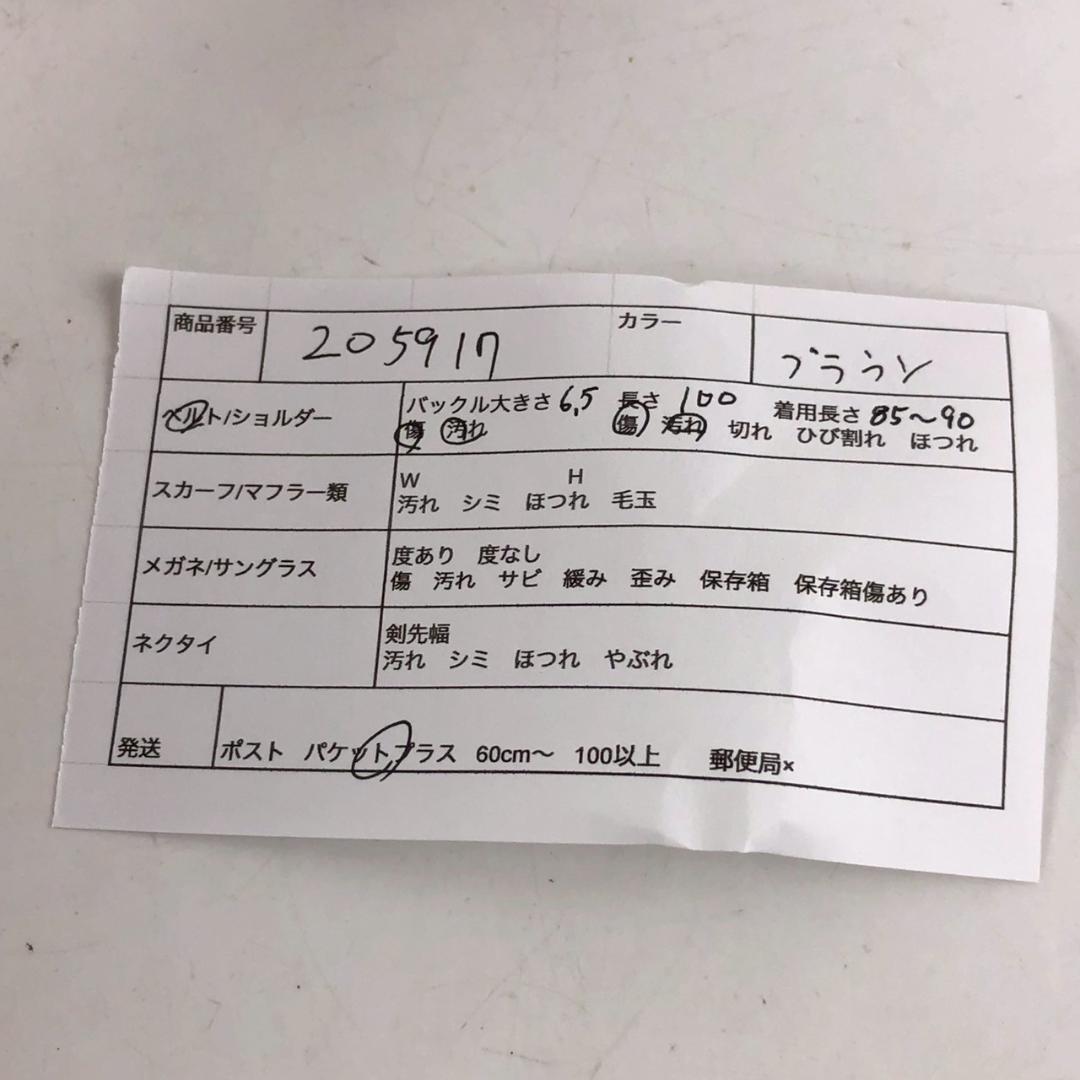 商品番号 205917 カラー ブラウン
ベルト/ショルダー バックル大きさ 6,5 長さ 100 着用長さ 85〜90
傷 汚れ 傷 汚れ 切れ ひび割れ ほつれ
スカーフ/マフラー類 W H
汚れ シミ ほつれ 毛玉
メガネ/サングラス 度あり 度なし
傷 汚れ サビ 緩み 歪み 保存箱 保存箱傷あり
ネクタイ 剣先幅
汚れ シミ ほつれ やぶれ
発送 ポスト パケットプラス 60cm〜 100以上 郵便局×